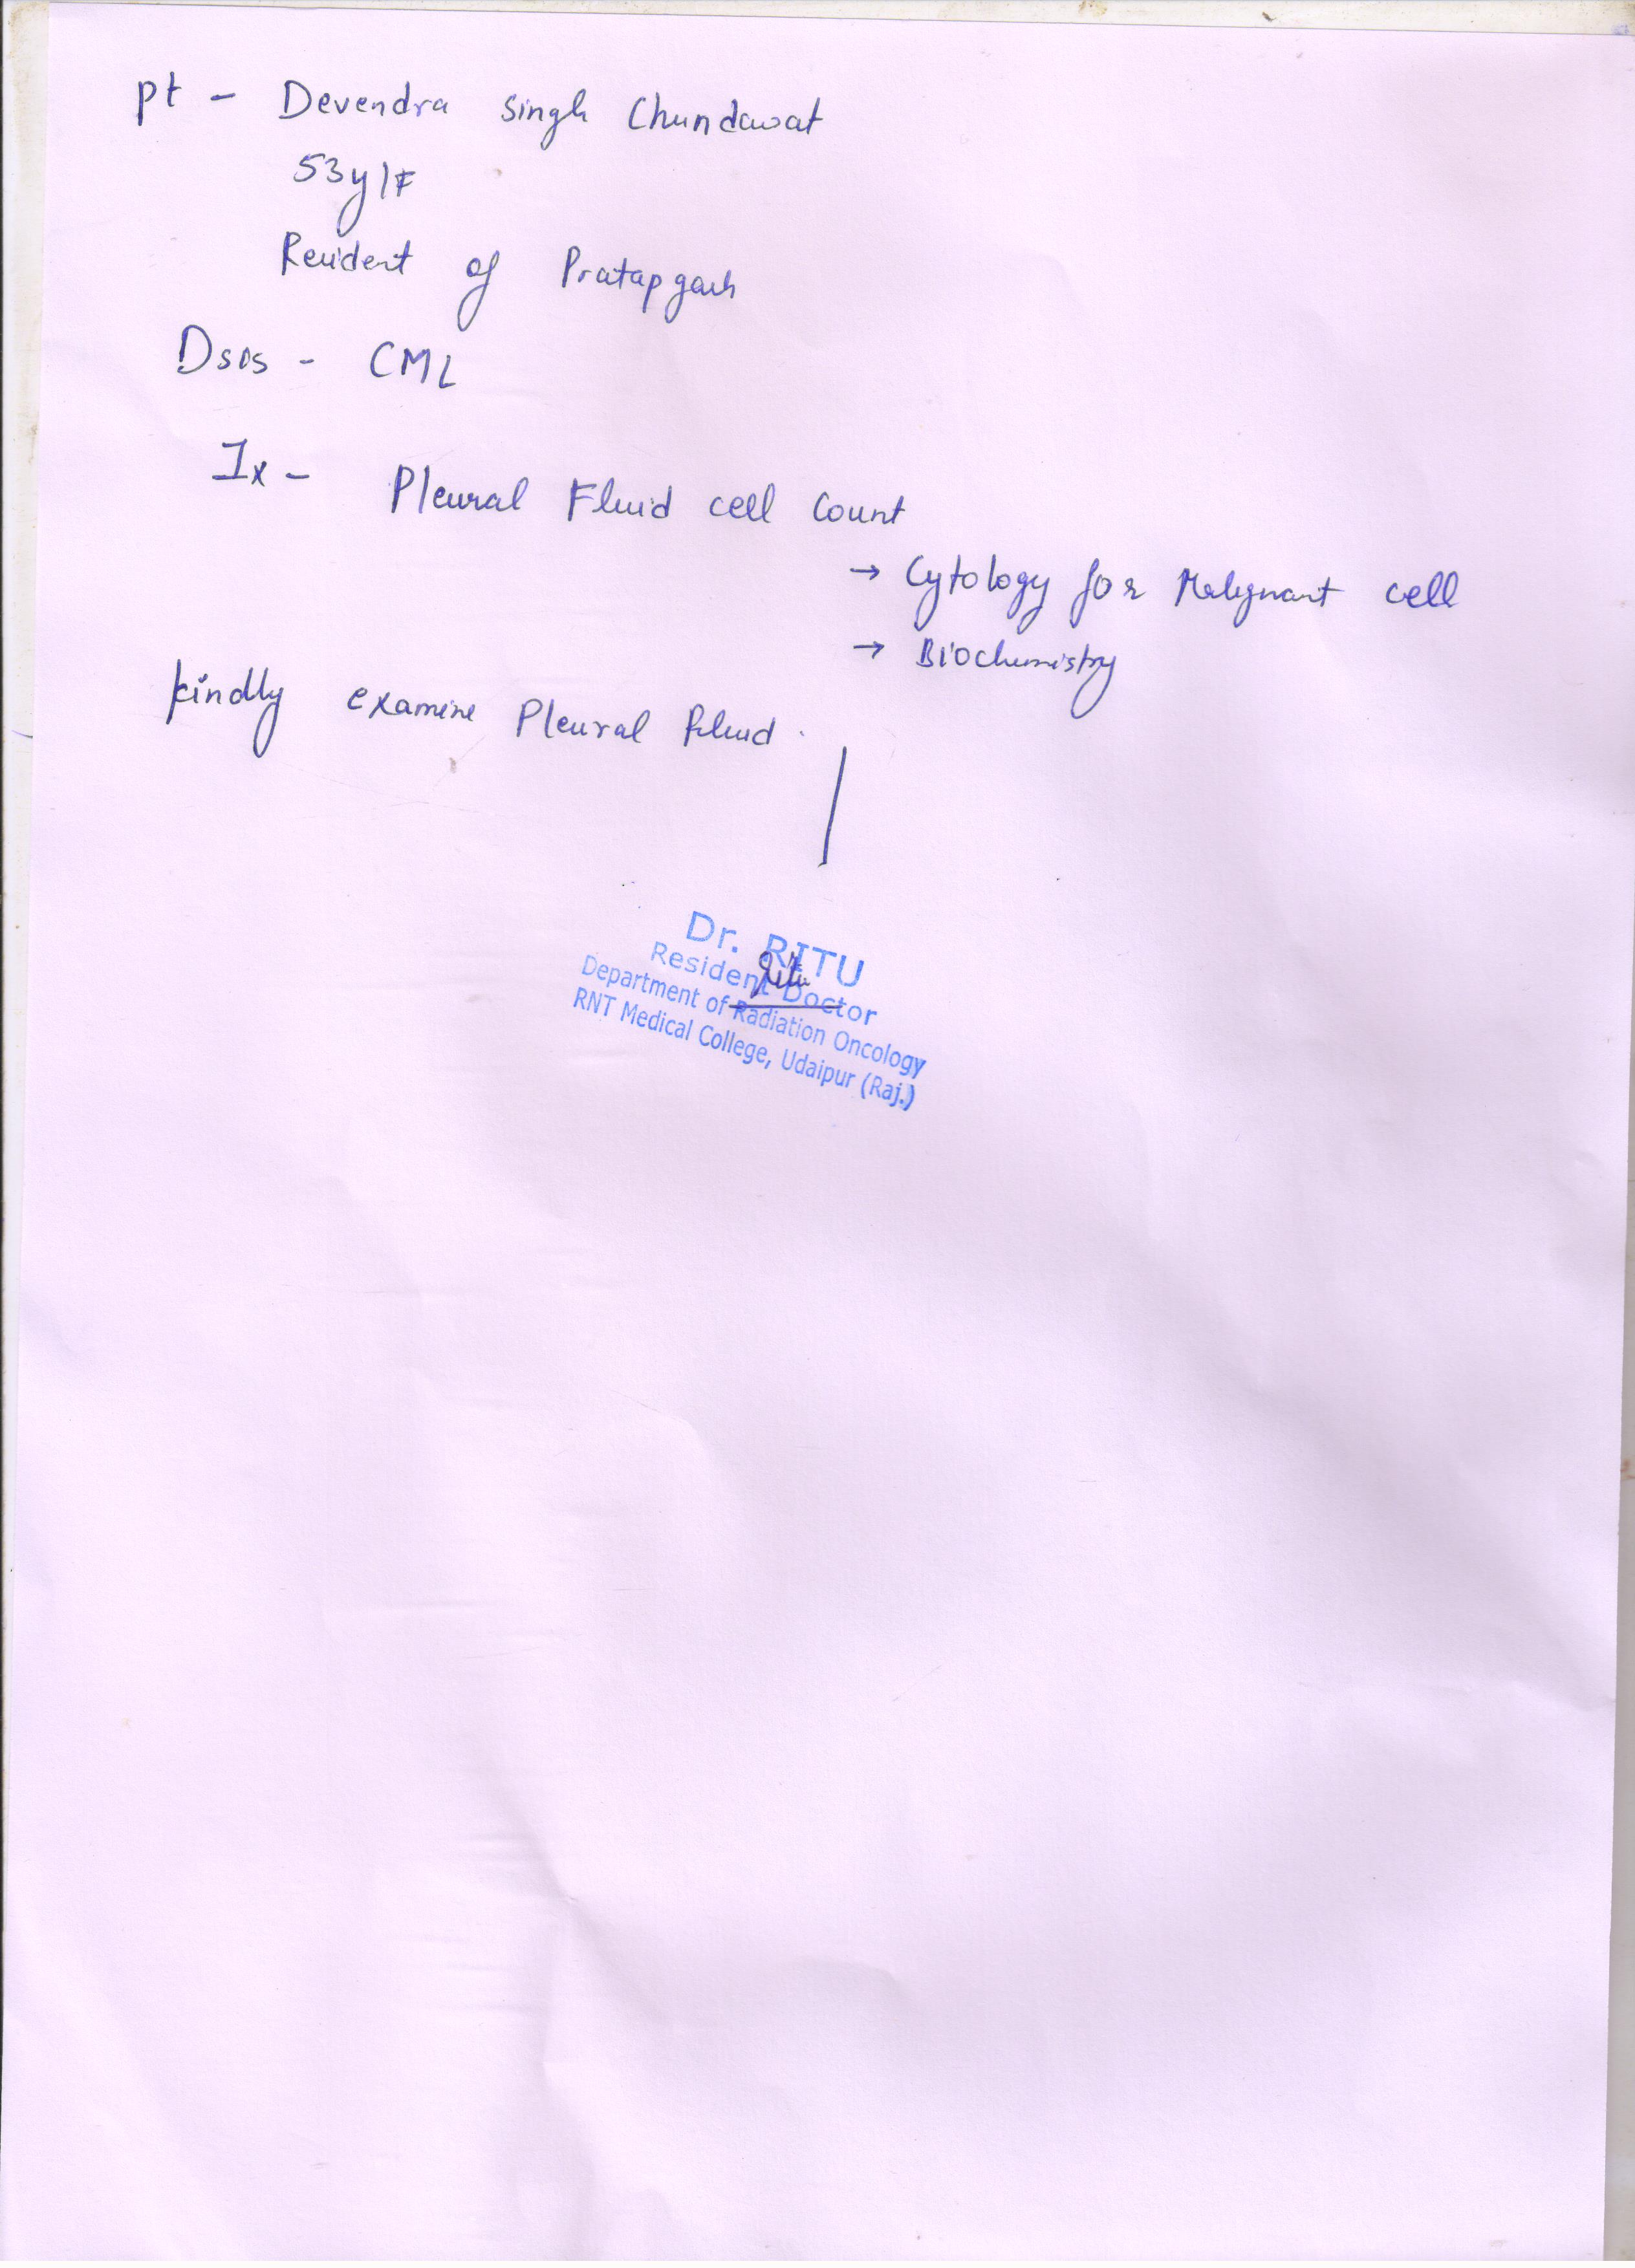 pt - Devendra Singh Chundawat
53y/F
Resident of Pratapgarh
Dsis - CML
Ix - Pleural Fluid cell count
→ Cytology for Malignant cell
→ Biochemistry
kindly examine Pleural fluid.
Dr. RITU
Resident Doctor
Department of Radiation Oncology
RNT Medical College, Udaipur (Raj.)